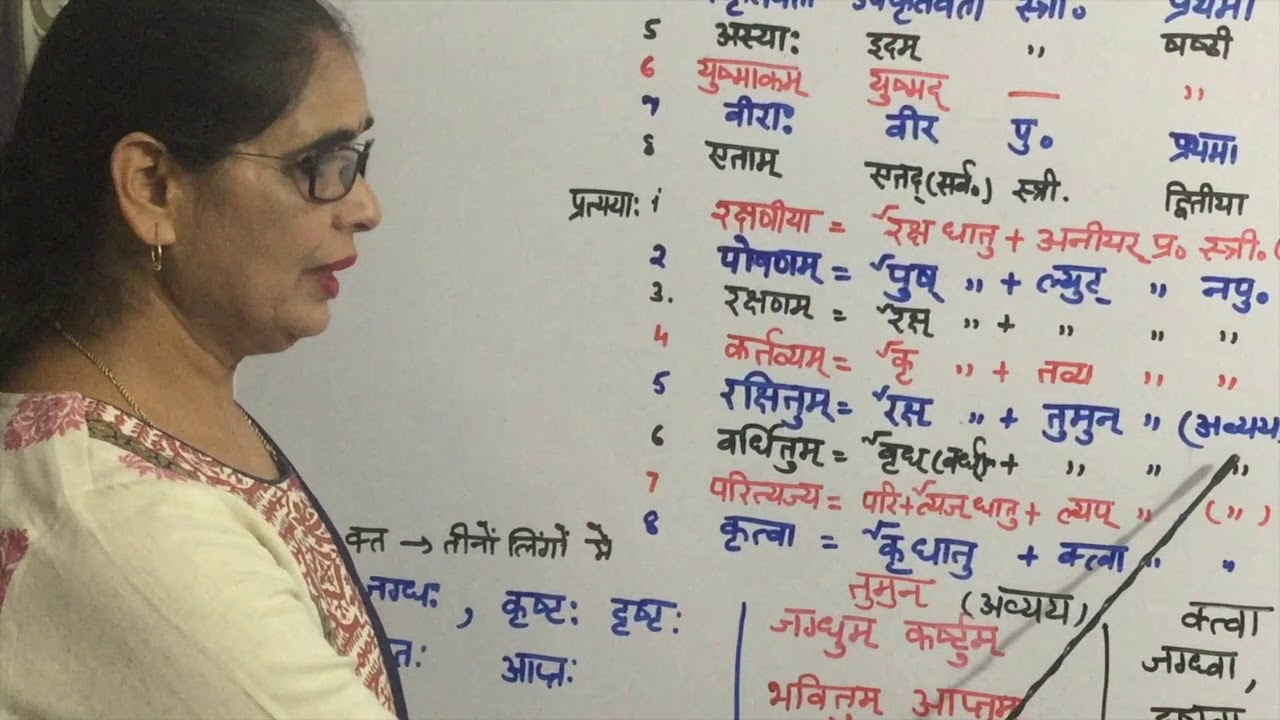 स्त्री. प्रथमा
5 अस्या: इदम् " षष्ठी
6 युष्माकम् युष्मद् — "
7 वीरा: वीर पु. प्रथमा
8 एताम् एतद् (सर्व.) स्त्री. द्वितीया
प्रत्यया: 1 रक्षणीया = √रक्ष धातु + अनीयर् प्र. स्त्री. (
2 पोषणम् = √पुष् " + ल्युट् " नपु.
3. रक्षणम् = √रक्ष् " + " " "
4 कर्तव्यम् = √कृ " + तव्य " "
5 रक्षितुम् = √रक्ष् " + तुमुन् " (अव्यय)
6 वर्धितुम् = √वृध् (वर्ध) + " " "
7 परित्यज्य = परि + √त्यज् धातु + ल्यप् " (")
8 कृत्वा = √कृ धातु + क्त्वा " "
क्त → तीनों लिंगों में
जग्धः, कृष्टः दृष्टः
आप्तः
तुमुन् (अव्यय)
जग्धुम् कर्ष्टुम्
भवितुम् आप्तुम्
क्त्वा
जग्ध्वा,